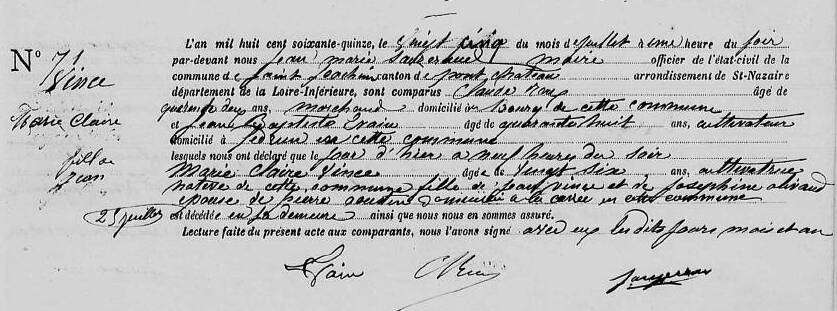 N° 71
Vince
Marie Claire
fille de
Jean
25 juillet
L'an mil huit cent soixante-quinze, le vingt cinq du mois de juillet heure du soir
par-devant nous jean marie maire officier de l'état-civil de la
commune de Saint Joachim canton de pont chateau arrondissement de St-Nazaire
département de la Loire-Inférieure, sont comparus Claude âgé de
quarante deux ans, marchand domicilié au Bourg de cette commune
et Jean Baptiste âgé de quarante huit ans, cultivateur
domicilié à en cette commune
lesquels nous ont déclaré que le jour d'hier a neuf heures du soir
Marie Claire Vince âgée de vingt six ans, cultivatrice
native de cette commune fille de jean vince et de josephine
epouse de pierre a la en cette commune
est décédée en sa demeure ainsi que nous nous en sommes assuré.
Lecture faite du présent acte aux comparants, nous l'avons signé avec eux les dits jours mois et an